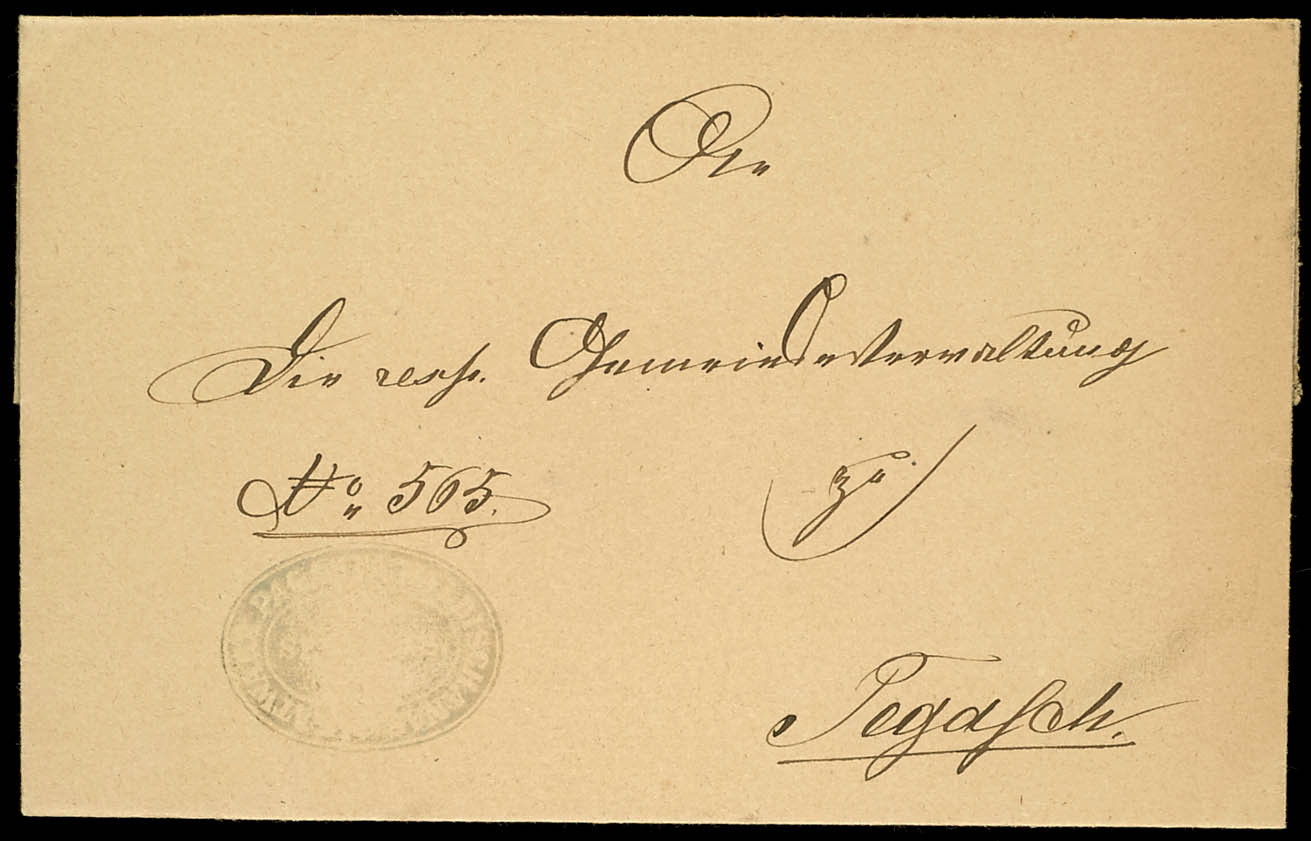 An
Die resp. Gemeindeverwaltung
No. 565.
zu
Tegasch.